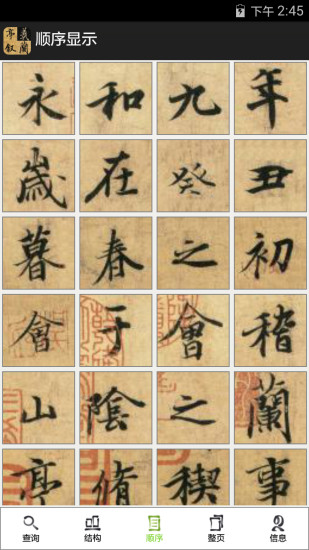 下午 2:45
羲蘭亭叙
顺序显示
永和九年
歲在癸丑
暮春之初
會于會稽
山陰之蘭
亭脩稧事
查询 结构 顺序 整页 信息